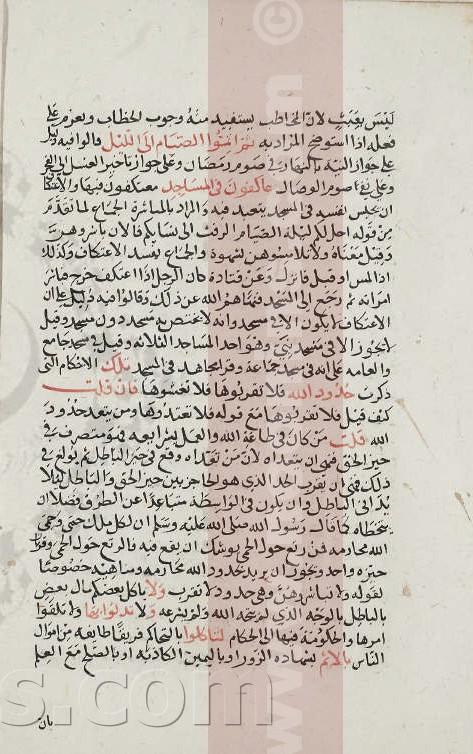 ليس بعبث لان المخاطب يستفيد منه وجوب الخطاب ويعزم على
فعله اذا استوضح المراد به ثم اتموا الصيام الى الليل قالوا فيه دليل
على جواز النية بالنهار في صوم رمضان وعلى جواز تاخير الغسل الى الفجر
وعلى نفي صوم الوصال عاكفون في المساجد معتكفون فيها والاعتكاف
ان يحبس نفسه في المسجد يتعبد فيه والمراد بالمباشرة الجماع لما تقدم
من قوله احل لكم ليلة الصيام الرفث الى نسايكم فالان باشروهن
وقيل معناه ولا تلامسوهن لشهوة والجماع يفسد الاعتكاف وكذلك
اذا لمس او قبل فانزل وعن قتادة كان الرجل اذا اعتكف خرج فباشر
امراته ثم رجع الى المسجد فنهاهم الله عن ذلك وقالوا فيه دليل على ان
الاعتكاف لا يكون الا في مسجد وانه لا يختص به مسجد دون مسجد وقيل
لا يجوز الا في مسجد نبي وهو احد المساجد الثلاثة وقيل في مسجد جامع
والعامة على انه في مسجد جماعة وقرا مجاهد في المسجد تلك الاحكام التي
ذكرت حدود الله فلا تقربوها فلا تغشوها فان قلت
كيف قيل فلا تقربوها مع قوله فلا تعتدوها ومن يتعد حدود
الله قلت من كان في طاعة الله والعمل بشرايعه فهو متصرف في
حيز الحق فنهى ان يتعداه لان من تعداه وقع في حيز الباطل ثم بولغ في
ذلك فنهى ان يقرب الحد الذي هو الحاجز بين حيز الحق والباطل ليلا
يداني الباطل وان يكون في الواسطة متباعدا عن الطرف فضلا ان
يتخطاه كما قال رسول الله صلى الله عليه وسلم ان لكل ملك حمى وحمى
الله محارمه فمن رتع حول الحمى يوشك ان يقع فيه فالرتع حول الحمى وقربان
حيزه واحد ويجوز ان يريد بحدود الله محارمه ومناهيه خصوصا
لقوله ولا تباشروهن وهي حدود لا تقرب ولا ياكل بعضكم مال بعض
بالباطل بالوجه الذي لم يبحه الله ولم يشرعه ولا تدلوا بها ولا تلقوا
امرها والحكومة فيها الى الحكام لتاكلوا بالتحاكم فريقا طايفة من اموال
الناس بالاثم بشهادة الزور او باليمين الكاذبة او بالصلح مع العلم
بان
s.com